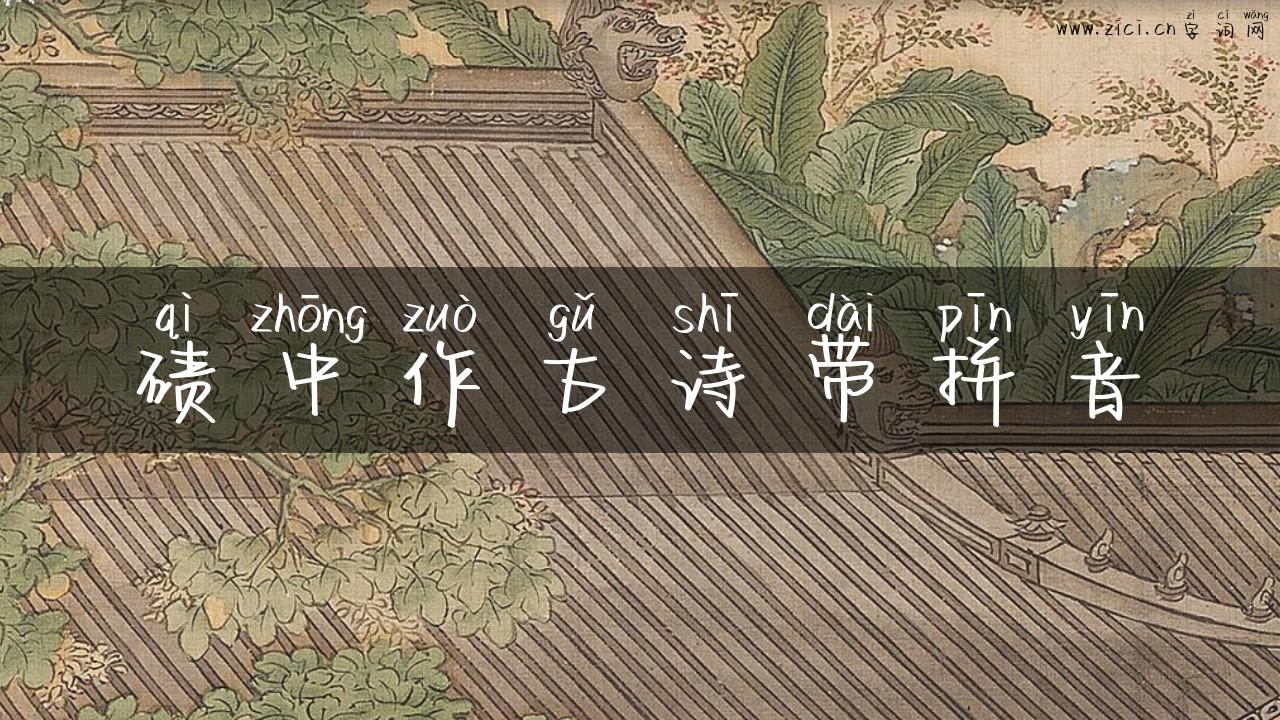 zì cí wǎng
www.zici.cn 字词网
qì zhōng zuò gǔ shī dài pīn yīn
碛中作古诗带拼音